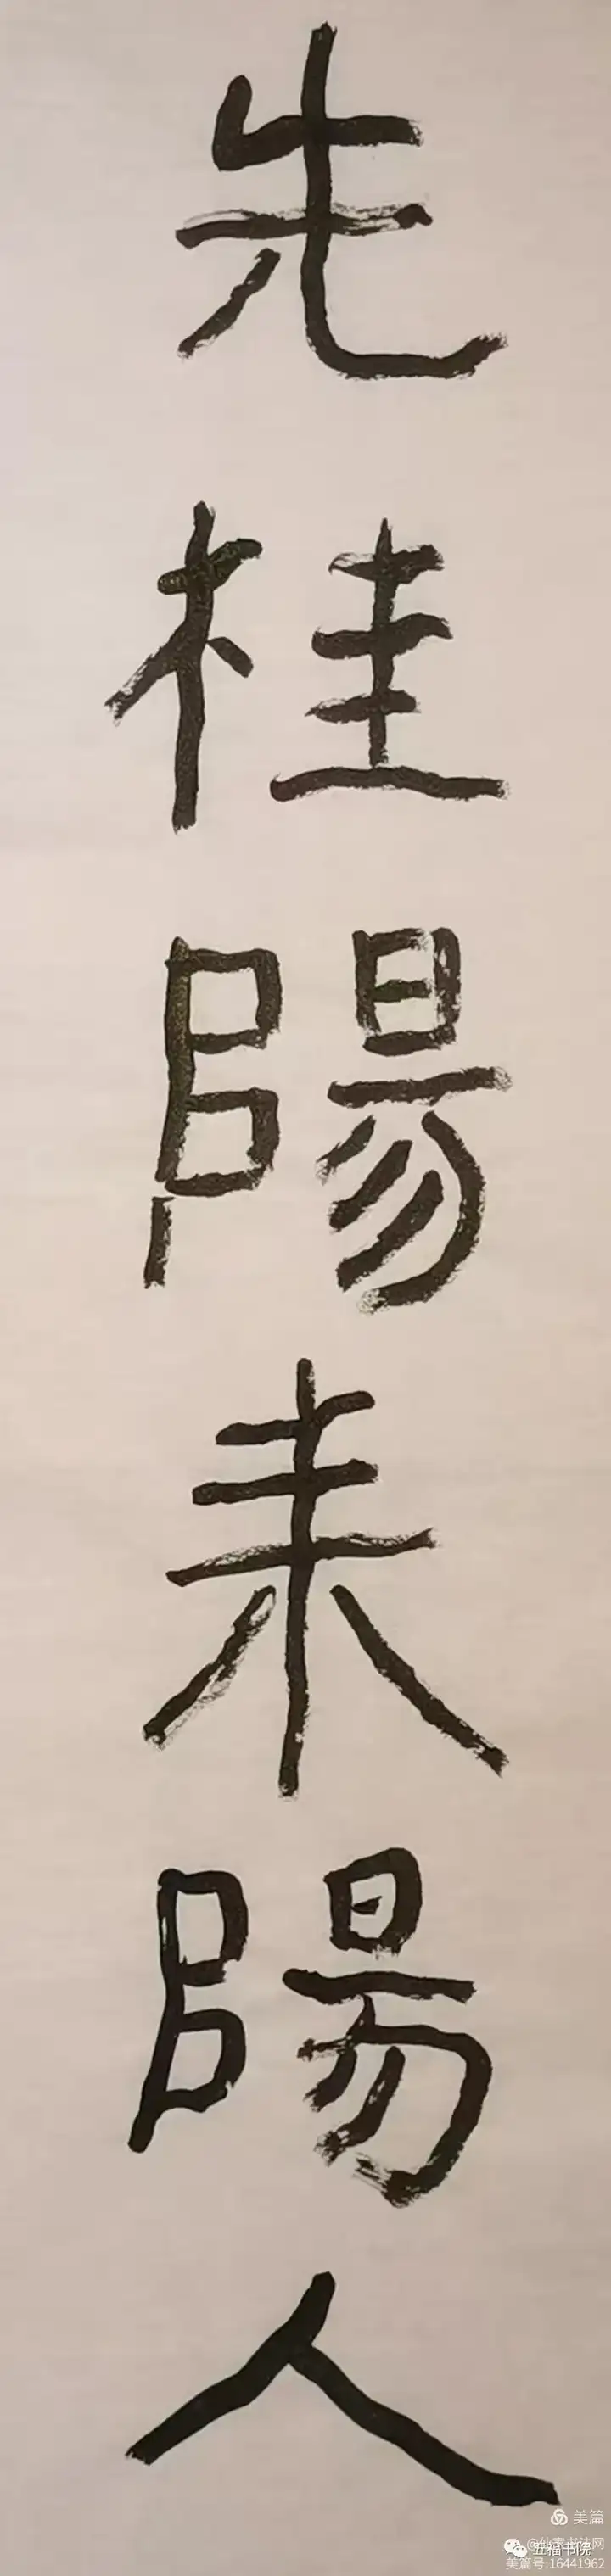 先桂陽耒陽人
美篇
五福书院
美篇号:16441962